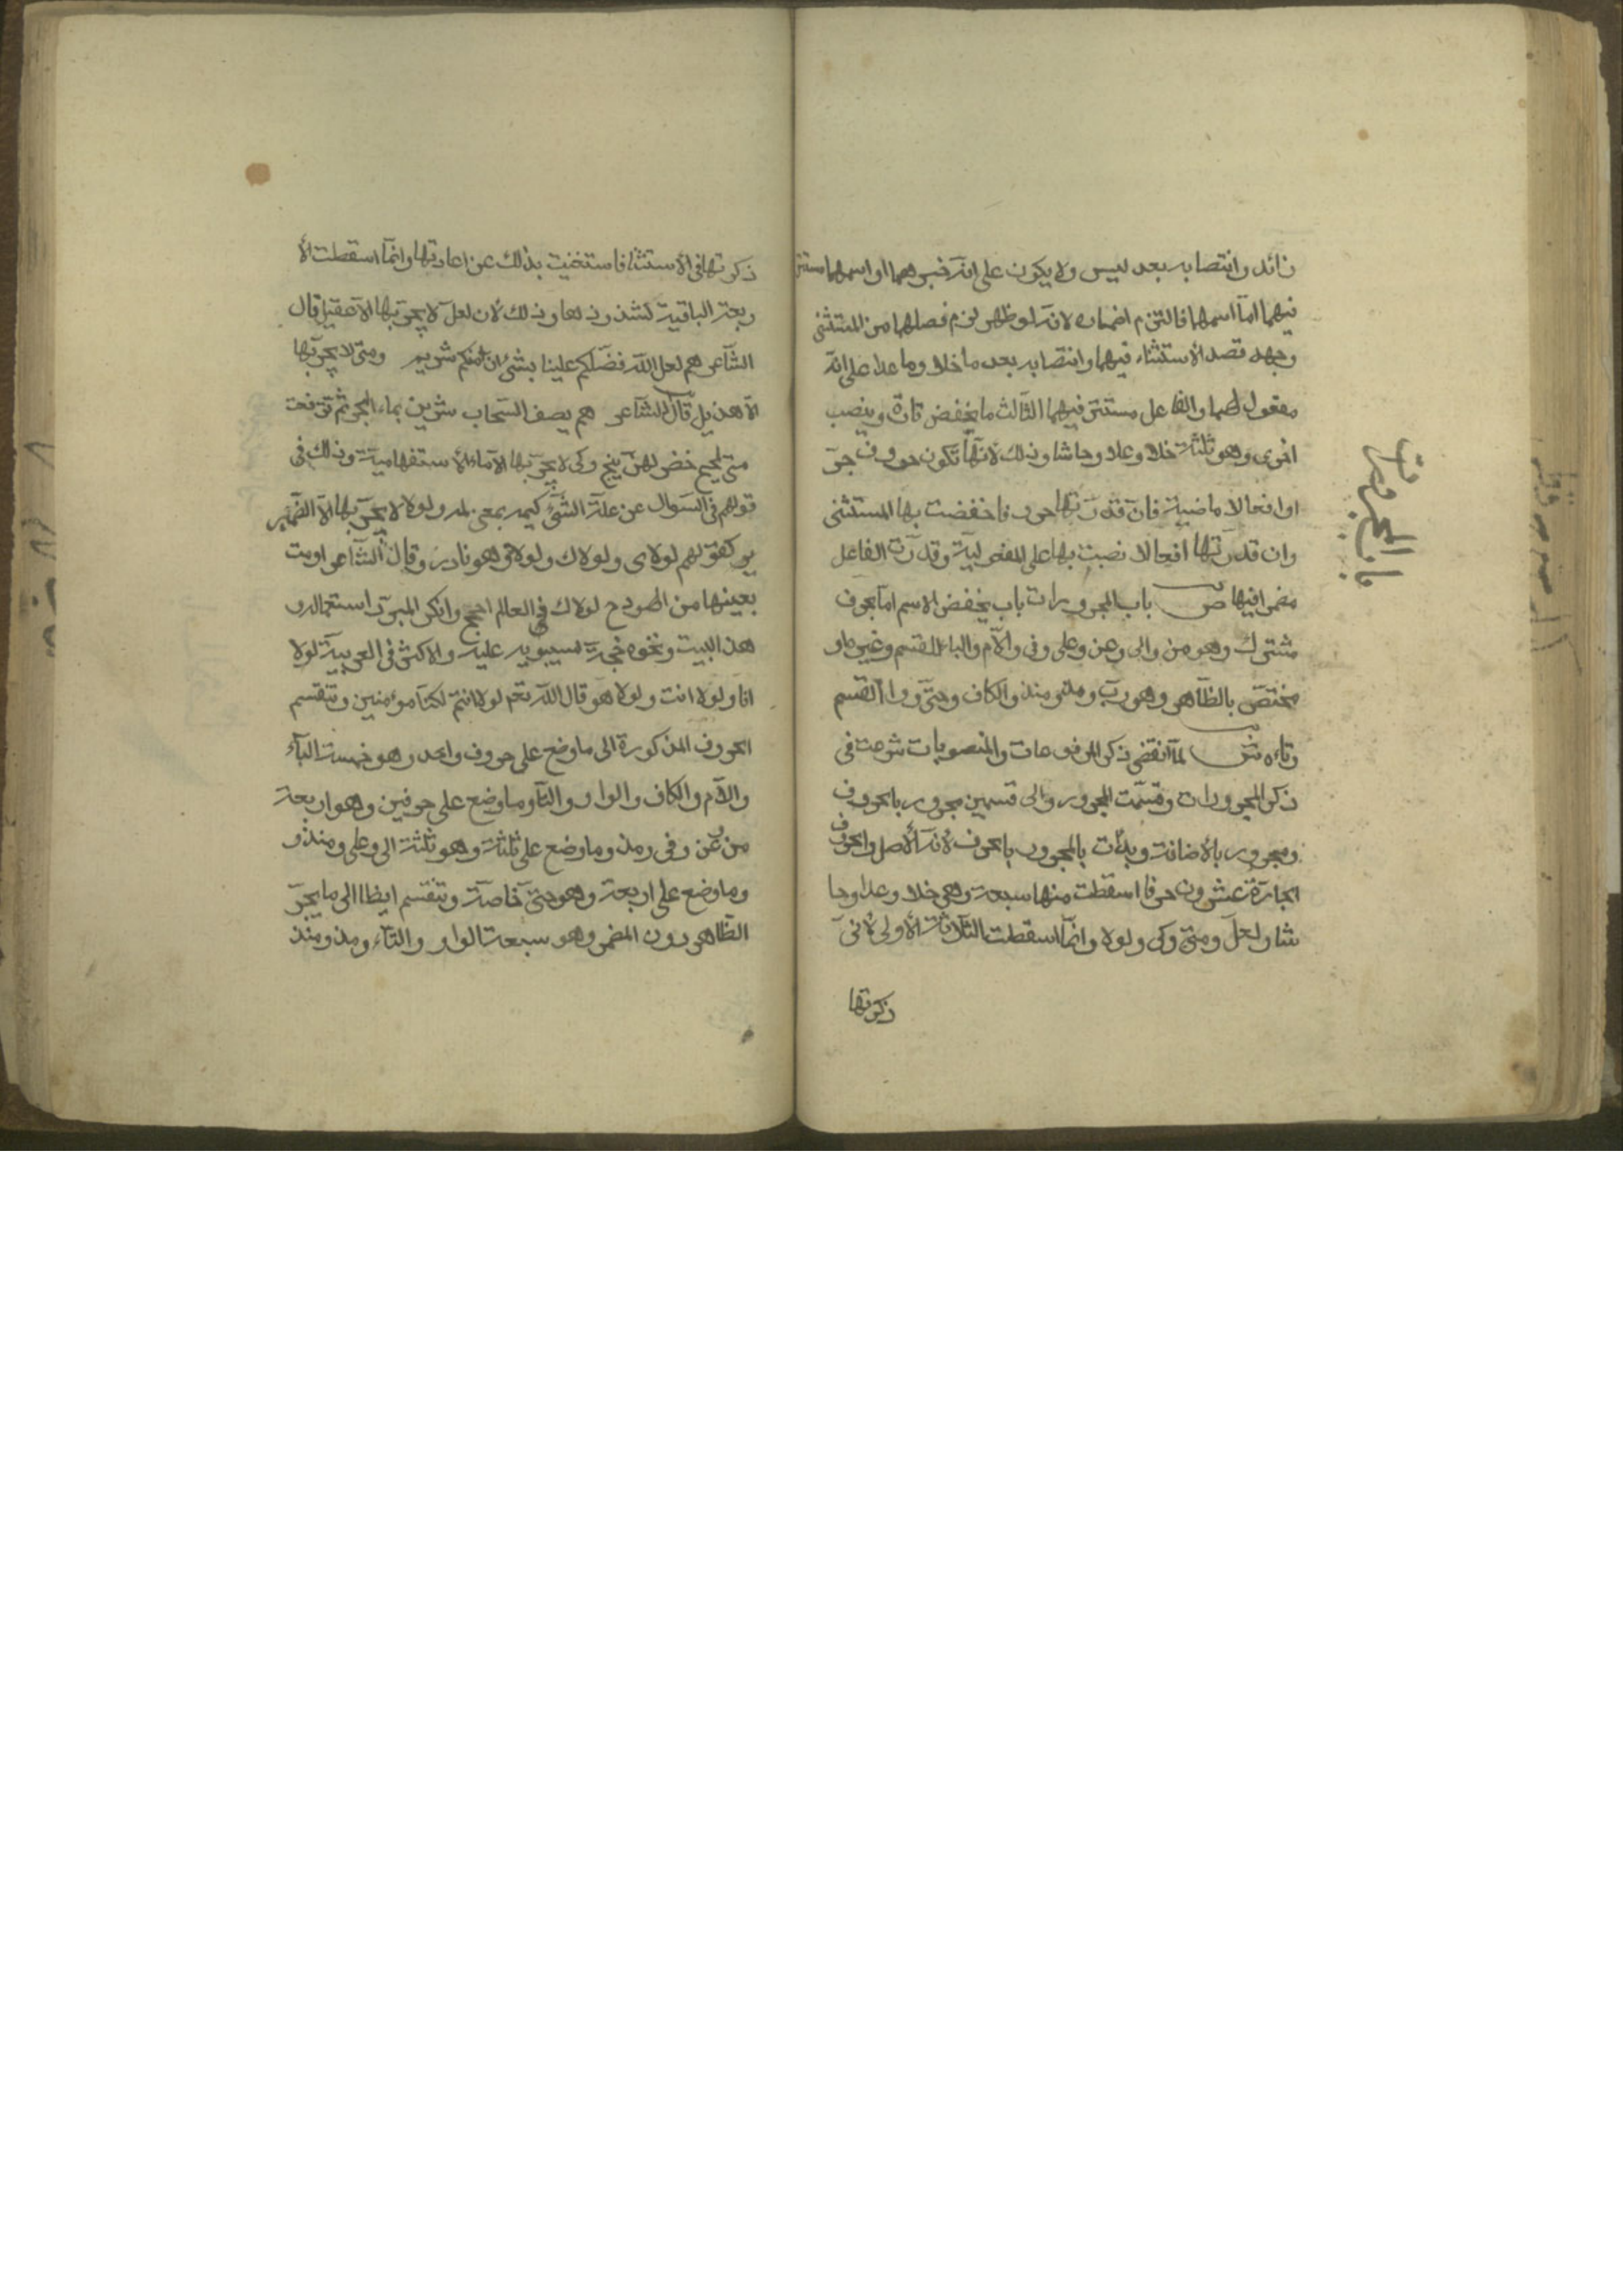 زائد وانتصابه بعد ليس ولا يكون على انه خبرهما واسمهما مستتر
فيهما اما اسمهما فالتزم اضماره لانه لو ظهر لزم فصلهما من المستثنى
وجهد قصد الاستثناء فيهما وانتصابه بعد ما خلا وما عدا على انه
مفعول لهما والفاعل مستتر فيهما الثالث ما يخفض تارة وينصب
اخرى وهو ثلثة خلا وعدا وحاشا وذلك لانها تكون حروف جر
او افعالا ماضية فان قدرتها حروفا خفضت بها المستثنى
وان قدرتها افعالا نصبت بها على المفعولية وقدرت الفاعل
مضمرا فيها ص باب المجرورات باب يخفض الاسم اما بحرف
مشترك وهو من والى وعن وعلى وفى واللام والباء للقسم وغيره او
مختص بالظاهر وهو رب ومذ ومنذ والكاف وحتى وواو القسم
وتاءه ش لما انقضى ذكر المرفوعات والمنصوبات شرعت فى
ذكر المجرورات وقسمت المجرور والى قسمين مجرور بالحروف
ومجرور بالاضافة وبدأت بالمجرور بالحرف لانه الاصل والحروف
الجارة عشرون حرفا اسقطت منها سبعة وهى خلا وعدا وحا
شا ولعل ومتى وكى ولولا وانما اسقطت الثلاثة الاولى لانى
ذكرتها
باب المجرورات
ذكرتها فى الاستثنا فاستغنيت بذلك عن اعادتها وانما اسقطت الا
ربعة الباقية لشذوذها وذلك لان لعل لا يجر بها الا عقيل قال
الشاعر هم لعل الله فضلكم علينا بشئ ان امكم شريم ومتى لا يجر بها
الا هذيل قال الشاعر هم يصف السحاب شربن بماء البحر ثم ترفعت
متى لجج خضر لهن نئيج وكى لا يجر بها الا ماء الاستفهامية وذلك فى
قولهم فى السؤال عن علة الشئ كيمه بمعنى لمه ولولا لا يجر بها الا الضمير
كقولهم لولاى ولولاك ولولاه وهو نادر وقال الشاعر اومت
بعينها من الهودج لولاك فى العالم احجج وانكر المبرد استعماله و
هذا البيت ونحوه حجة لسيبويه عليه والاكثر فى العربية لولا
انا ولولا انت ولولا هو قال الله تعم لولا انتم لكنا مؤمنين وتنقسم
الحروف المذكورة الى ما وضع على حروف واحد وهو خمسة الباء
واللام والكاف والواو والتاء وما وضع على حرفين وهو اربعة
من وعن وفى ومذ وما وضع على ثلثة وهو ثلثة الى وعلى ومنذ و
وما وضع على اربعة وهو حتى خاصة وتنقسم ايظا الى ما يجر
الظاهر دون المضمر وهو سبعة الواو والتاء ومذ ومنذ